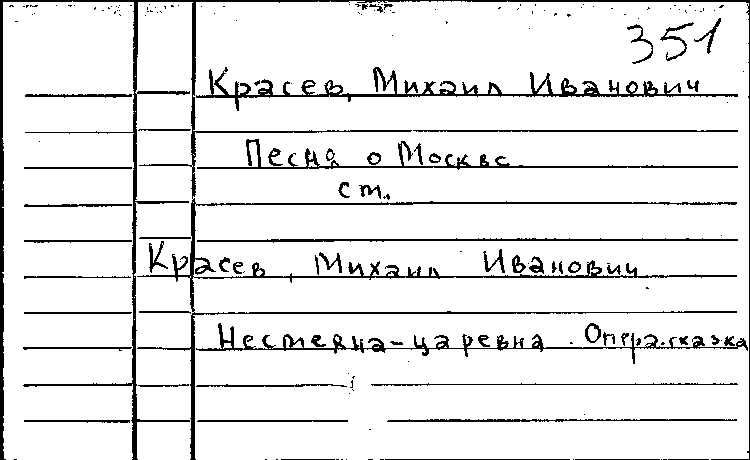 351
Красев, Михаил Иванович
Песня о Москве
ст.
Красев, Михаил Иванович
Несмеяна-царевна. Опера-сказка